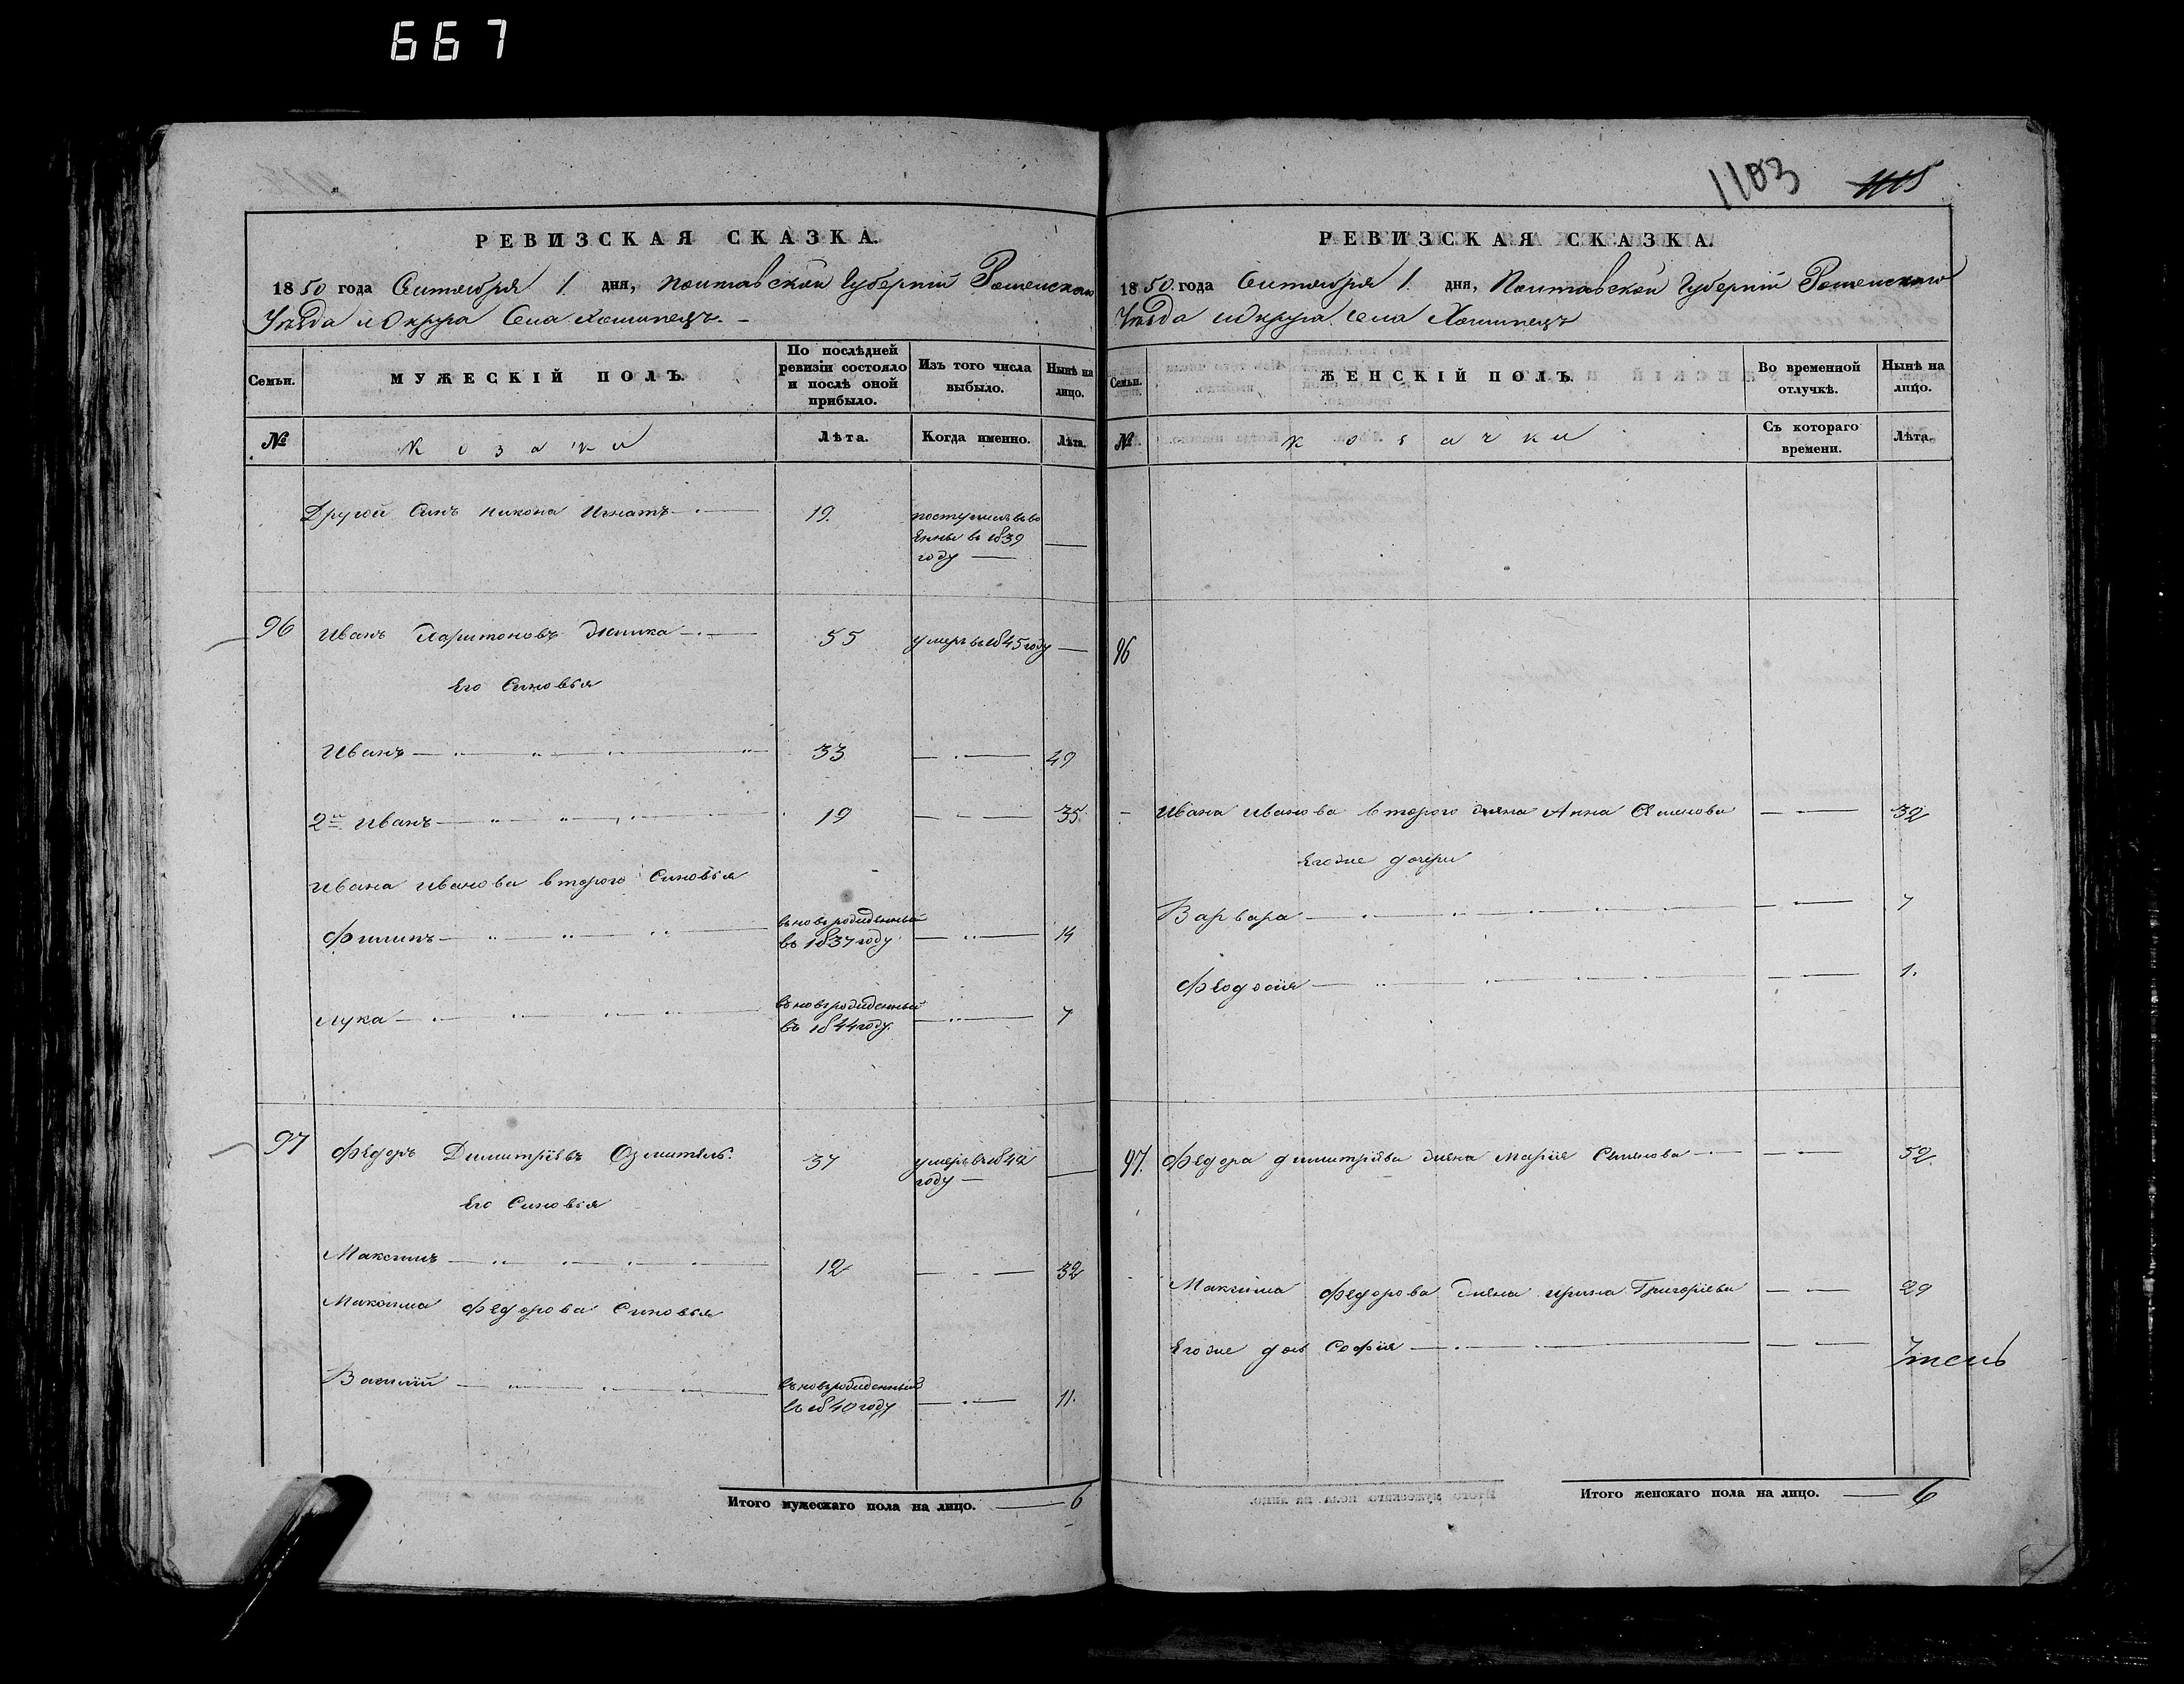 667
РЕВИЗСКАЯ СКАЗКА.
1850 года Сентября 1. дня, Полтавской Губерніи Роменского
Уѣзда и Округа Села
Семьи.
МУЖЕСКІЙ ПОЛЪ.
По послѣдней ревизіи состояло и послѣ оной прибыло.
Изъ того числа выбыло.
Нынѣ на лицо.
№
Козаки
Лѣта.
Когда именно.
Лѣта.
Другой Синъ Никона Игнатъ 19.
въ 1839
году
96 Иванъ Харитоновъ 55 умеръ въ 1845 году
Его Синовья
Иванъ 33 49
2й Иванъ 19 35.
Ивана Иванова второго Синовья
Филипъ въновърожденный въ 1837 году 14
Лука въновърожденный въ 1844 году. 7
97 Федоръ Димитріевъ 37 умеръ въ 1842 году
Его Синовья
Максимъ 12 32
Максима Федорова Синовья
Василій въновърожденный въ 1840 году 11.
Итого мужескаго пола на лицо. 6
1103 1105
РЕВИЗСКАЯ СКАЗКА.
1850. года Сентября 1. дня, Полтавской Губерніи Роменского
Уѣзда и Округа Села
Семьи.
ЖЕНСКІЙ ПОЛЪ.
Во временной отлучкѣ.
Нынѣ на лицо.
№
Козачки
Съ котораго времени.
Лѣта.
96
Ивана Иванова второго жена Анна Семенова 32
Егоже дочери
Варвара 7
Феодосія 1.
97. Федора Димитріева жена Марія Семенова 52.
Максима Федорова жена Ирина Григоріева 29
Егоже дочь Софія 7 месь
Итого женскаго пола на лицо. 6